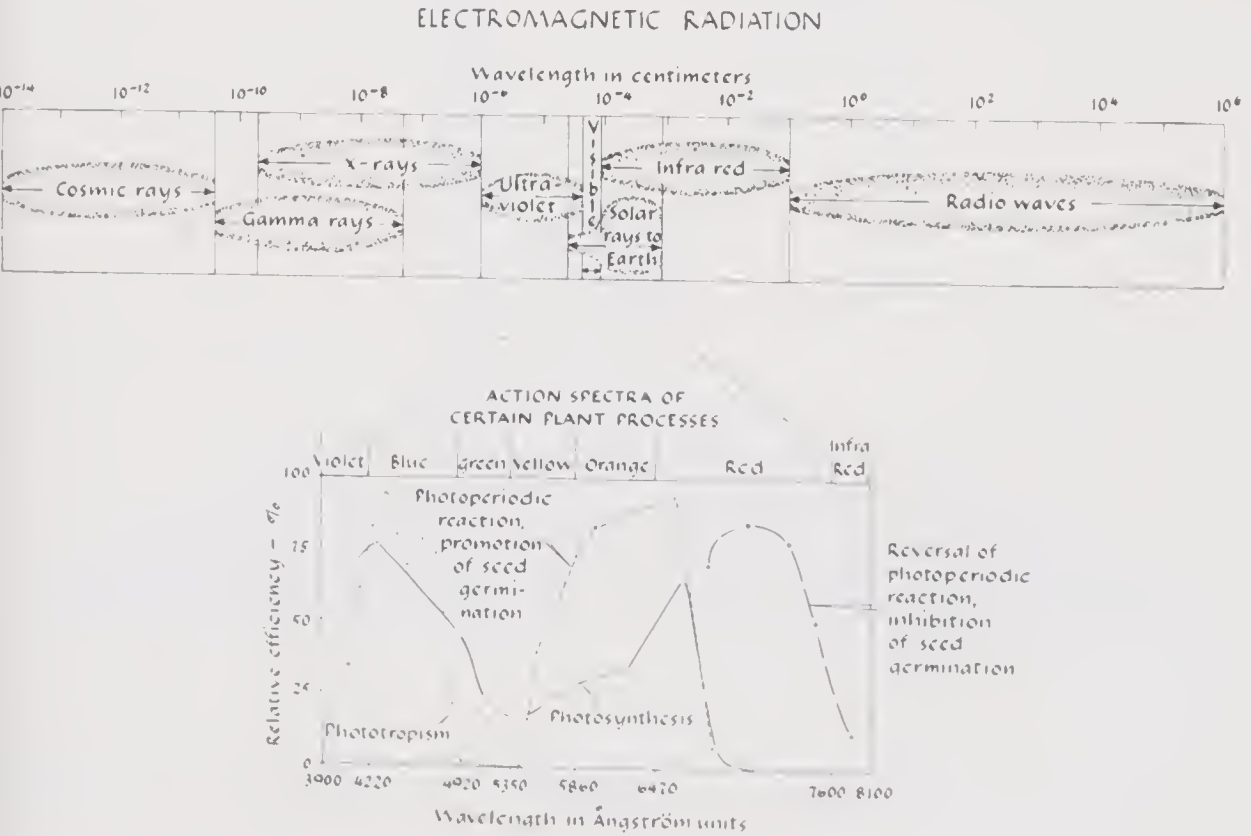 ELECTROMAGNETIC RADIATION
Wavelength in centimeters
10⁻¹⁴ 10⁻¹² 10⁻¹⁰ 10⁻⁸ 10⁻⁶ 10⁻⁴ 10⁻² 10⁰ 10² 10⁴ 10⁶
Cosmic rays
Gamma rays
X-rays
Ultra-
violet
Visible
Infra red
Solar
rays to
Earth
Radio waves
ACTION SPECTRA OF
CERTAIN PLANT PROCESSES
Violet Blue Green Yellow Orange Red Infra
Red
Relative efficiency – %
100
75
50
25
0
Photoperiodic
reaction,
promotion
of seed
germi-
nation
Phototropism
Photosynthesis
Reversal of
photoperiodic
reaction,
inhibition
of seed
germination
3900 4220 4920 5350 5860 6470 7600 8100
Wavelength in Ångström units